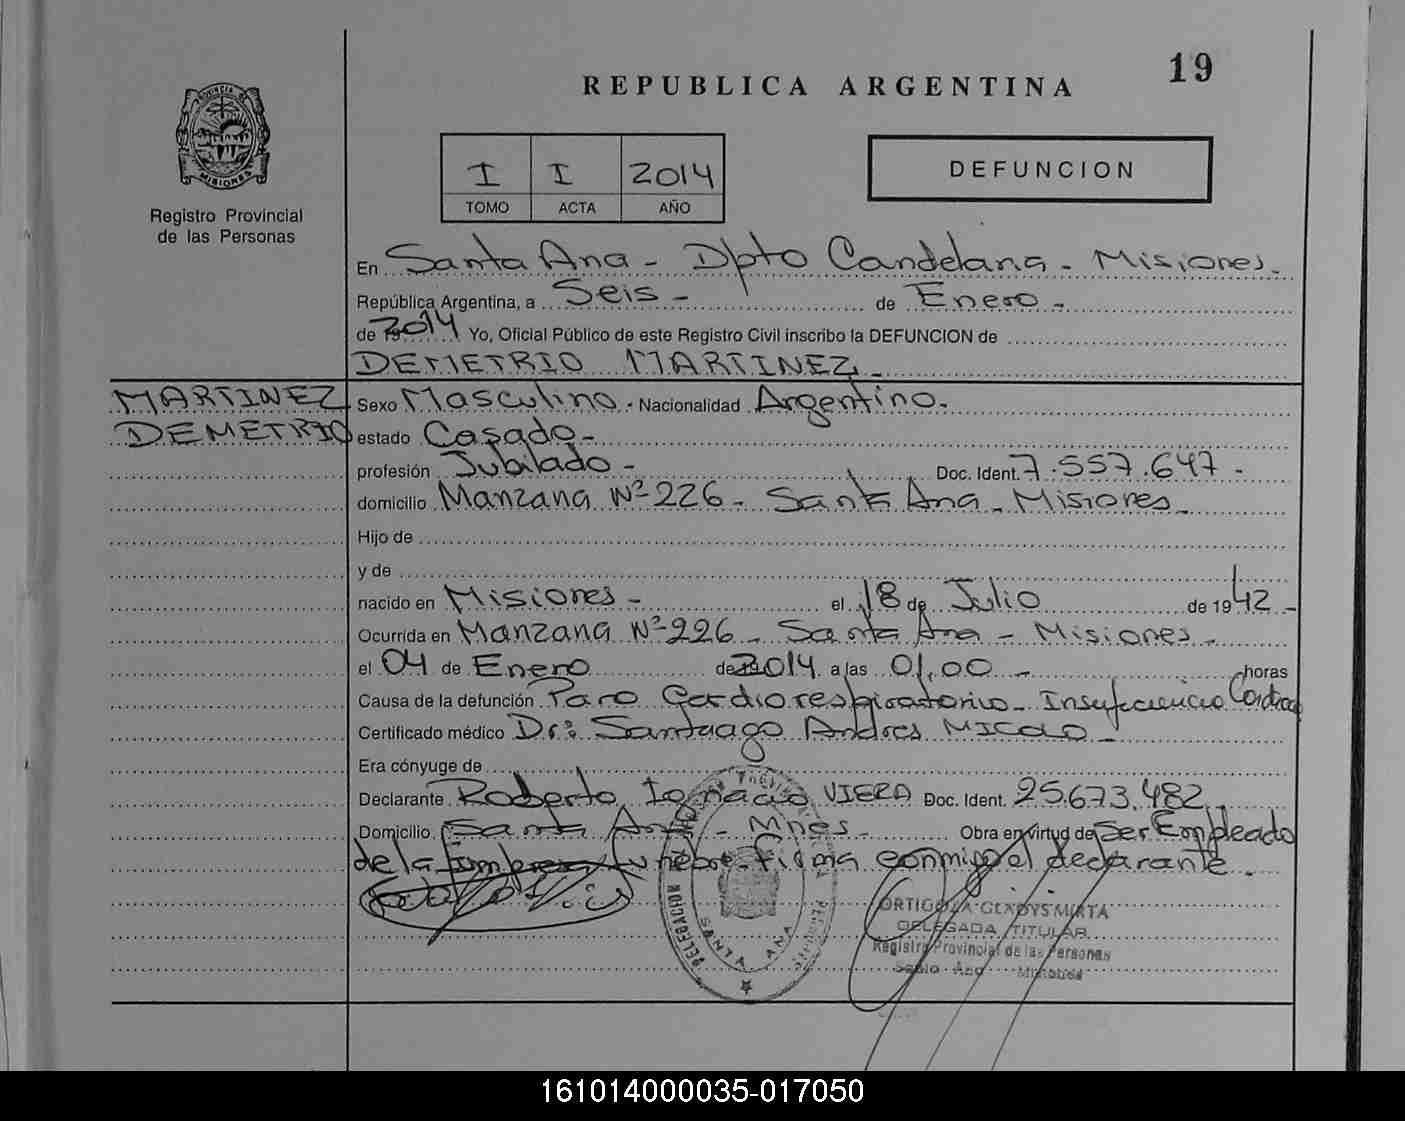 19
REPUBLICA ARGENTINA
PROVINCIA DE
MISIONES
Registro Provincial
de las Personas
I I 2014
TOMO ACTA AÑO
DEFUNCION
En Santa Ana - Dpto Candelaria - Misiones -
República Argentina, a Seis - de Enero -
de 2014 Yo, Oficial Público de este Registro Civil inscribo la DEFUNCION de
DEMETRIO MARTINEZ -
MARTINEZ
DEMETRIO
Sexo Masculino - Nacionalidad Argentino -
estado Casado -
profesión Jubilado - Doc. Ident. 7.557.647 -
domicilio Manzana Nº 226 - Santa Ana - Misiones -
Hijo de
y de
nacido en Misiones - el 18 de Julio de 1942 -
Ocurrida en Manzana Nº 226 - Santa Ana - Misiones -
el 04 de Enero de 2014 a las 01,00 - horas
Causa de la defunción Paro Cardiorespiratorio - Insuficiencia Cardiaca
Certificado médico Dr: Santiago Andres -
Era cónyuge de
Declarante Roberto Ignacio VIERA Doc. Ident. 25.673.482 -
Domicilio Santa Ana - Mnes - Obra en virtud de Ser Empleado
de la funebre firma conmigo el declarante.
DELEGACION
SANTA ANA
ORTIGOZA GLADYS MIRTA
DELEGADA TITULAR
Registro Provincial de las Personas
Santa Ana Misiones
161014000035-017050